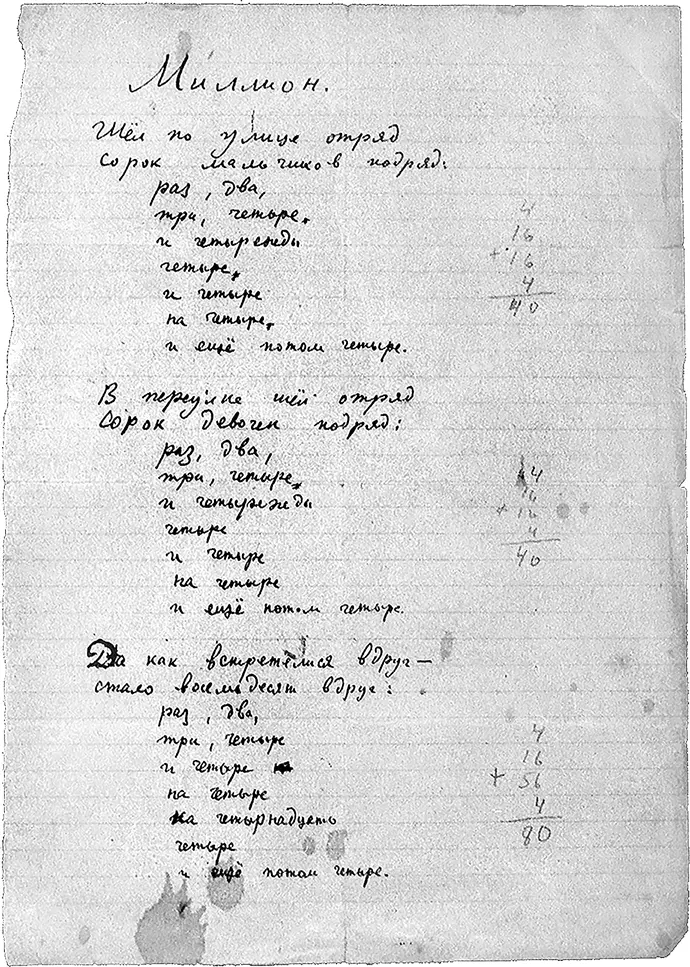 Миллион.
Шёл по улице отряд
Сорок мальчиков подряд:
раз, два,
три, четыре,
и четырежды
четыре,
и четыре
на четыре,
и ещё потом четыре.
4
16
+ 16
4
40
В переулке шёл отряд
Сорок девочек подряд:
раз, два,
три, четыре,
и четырежды
четыре
и четыре
на четыре
и ещё потом четыре.
44
16
+ 16
4
40
Да как встретилися вдруг —
стало восемьдесят вдруг:
раз, два,
три, четыре
и четыре
на четыре
на четырнадцать
четыре
и ещё потом четыре.
4
16
+ 56
4
80